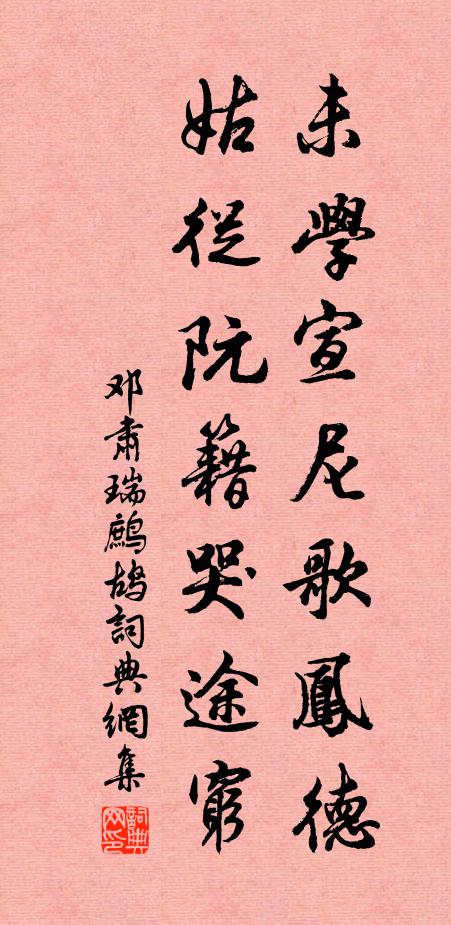 未學宣尼歌鳳德
姑從阮籍哭途窮
邓肅瑞鷓鴣詞典網集
詞典
网印